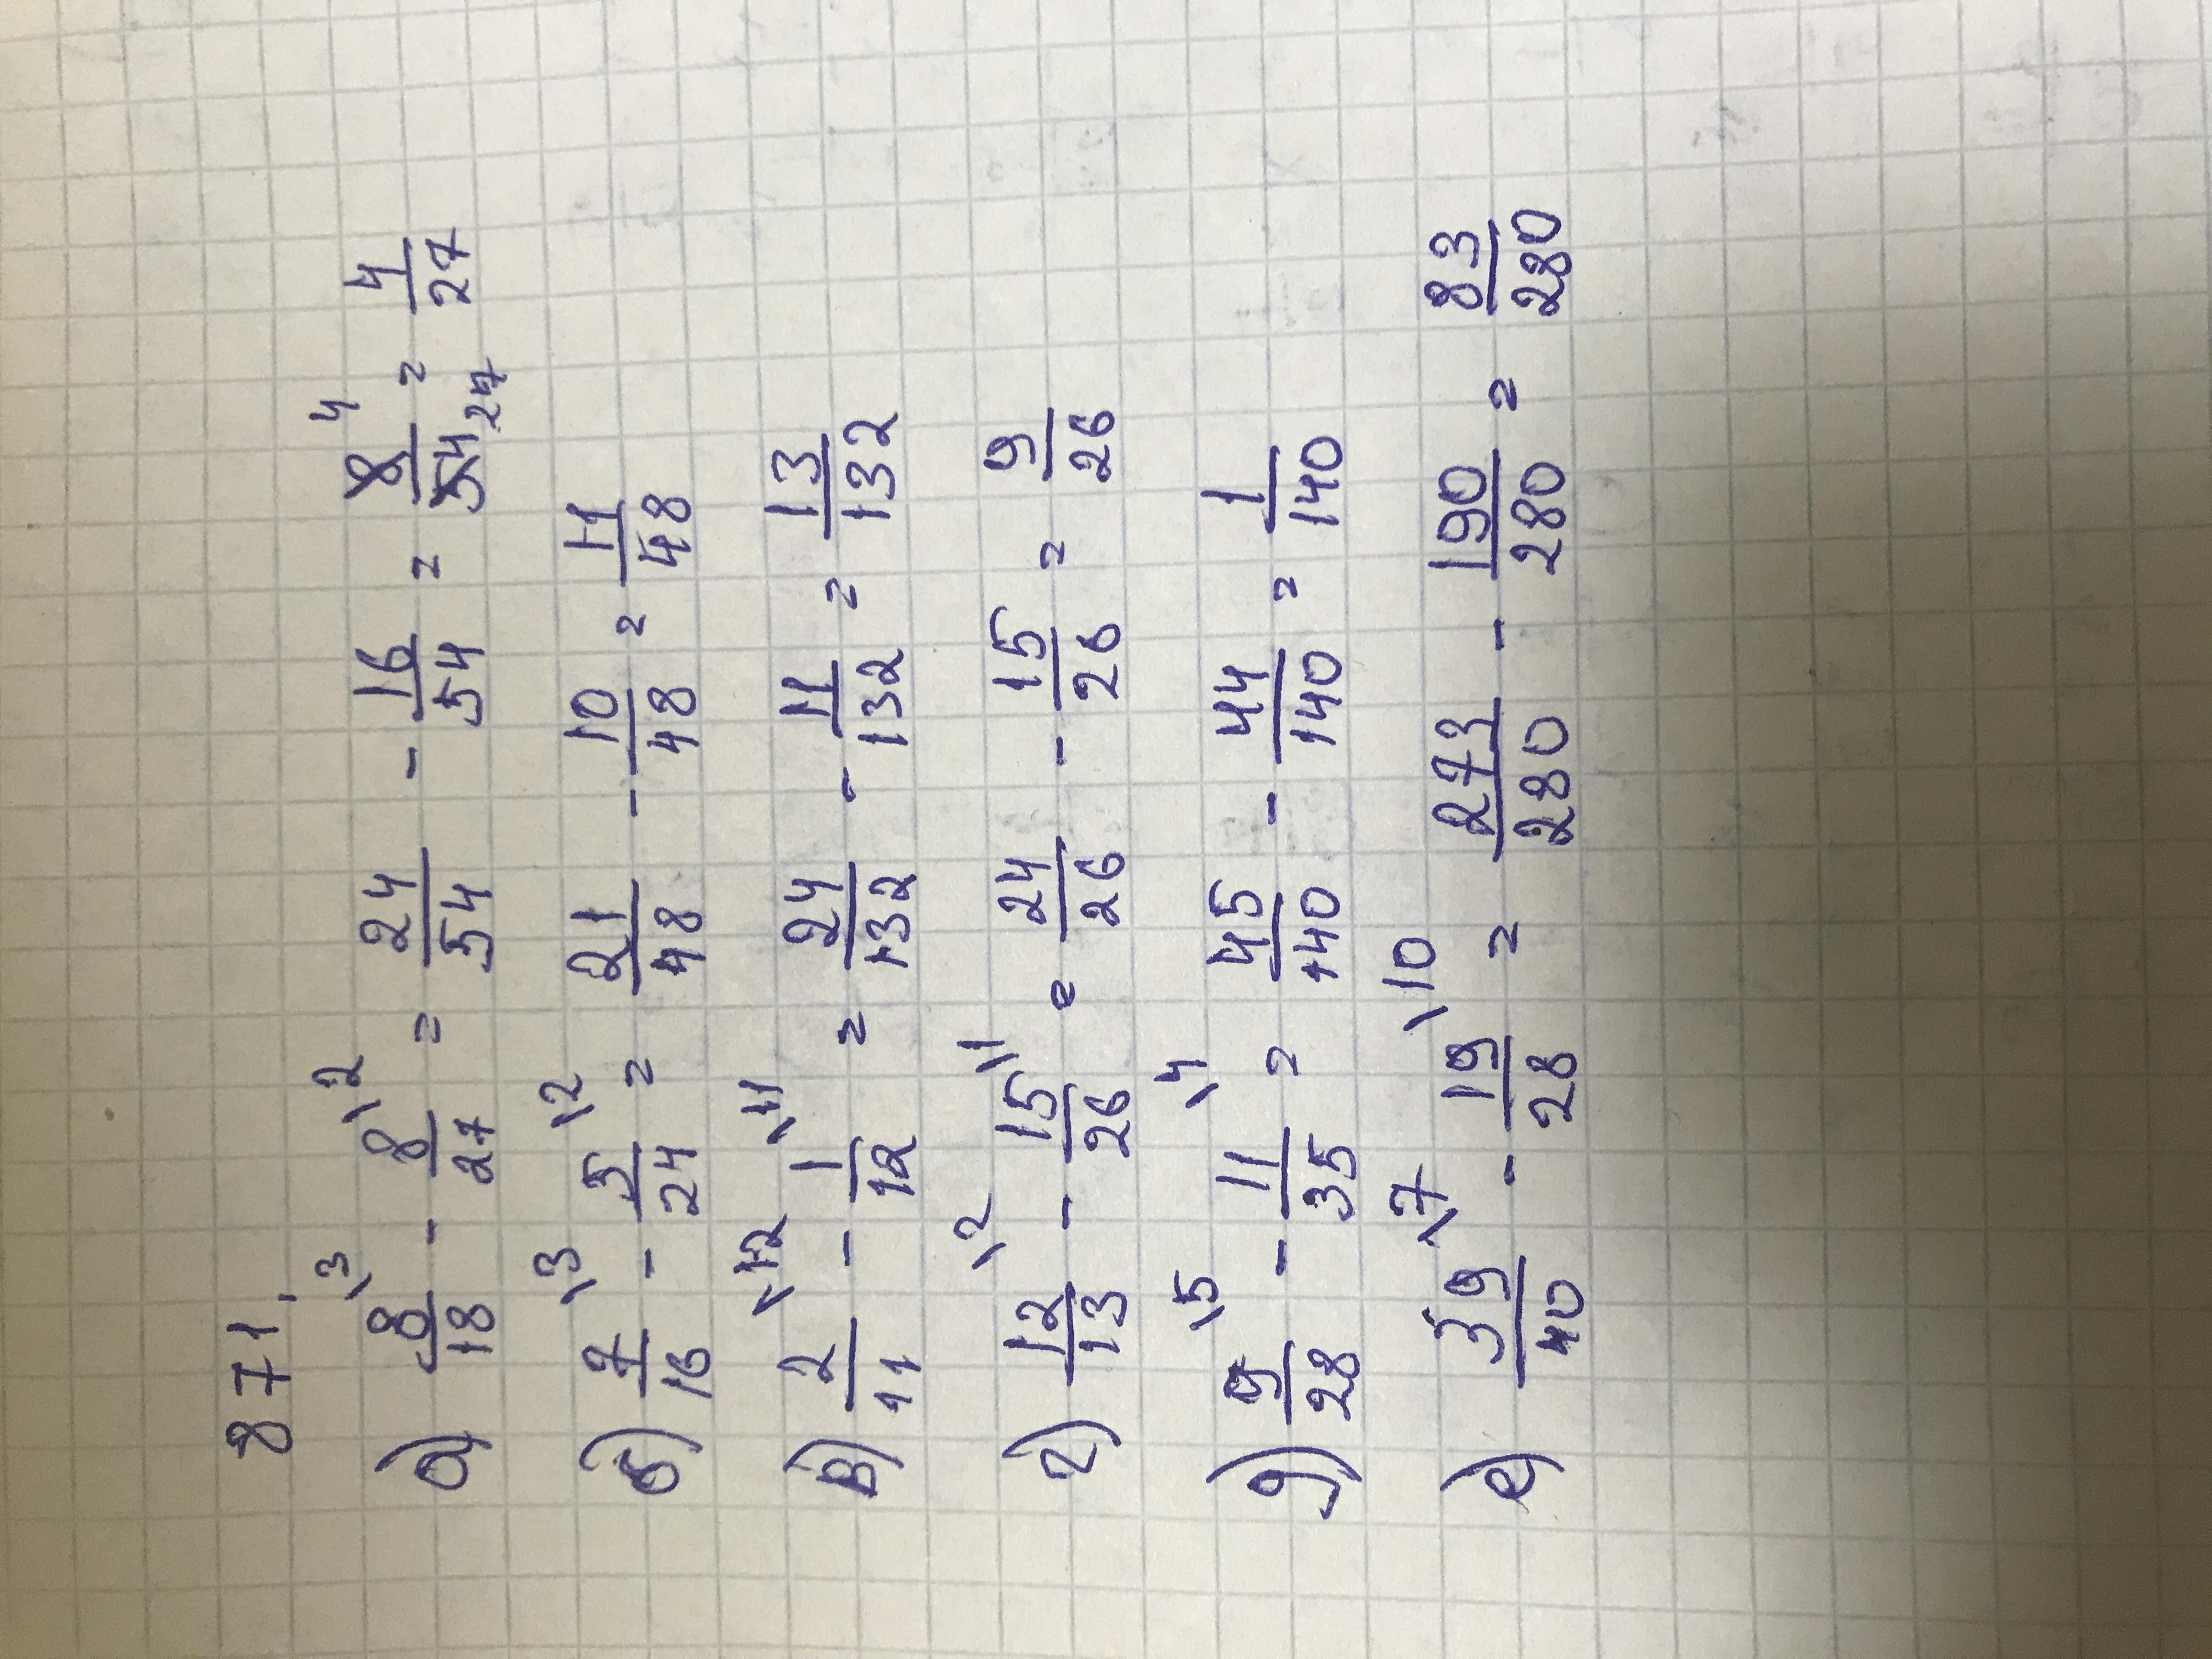 871.
а) 8/18 \3 - 8/27 \2 = 24/54 - 16/54 = 8/54 4 27 = 4/27
б) 7/16 \3 - 5/24 \2 = 21/48 - 10/48 = 11/48
в) 2/11 \12 - 1/12 \11 = 24/132 - 11/132 = 13/132
г) 12/13 \2 - 15/26 \1 = 24/26 - 15/26 = 9/26
д) 9/28 \5 - 11/35 \4 = 45/140 - 44/140 = 1/140
е) 39/40 \7 - 19/28 \10 = 273/280 - 190/280 = 83/280